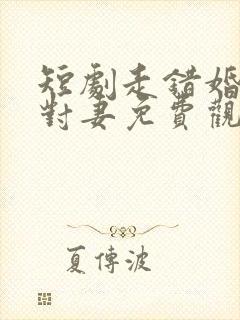 短劇走錯婚
對妻免費觀
夏傳波